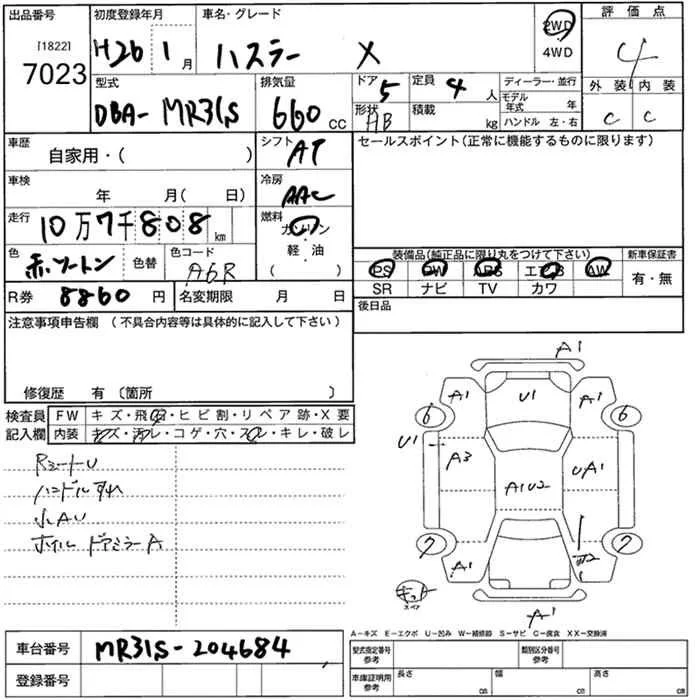 出品番号 初度登録年月 車名・グレード 2WD 評価点
[1822] 7023 H26 1月 ハスラー X 4WD 4
型式 排気量 ドア 5 定員 4人 ディーラー・並行 外装 内装
DBA-MR31S 660cc 形状 HB 積載 kg モデル年式 年 C C
ハンドル 左・右
車歴 自家用・( ) シフト AT セールスポイント(正常に機能するものに限ります)
車検 年 月( 日) 冷房 AAC
走行 10万7千808km 燃料 ガソリン・軽油 ( )
色 赤ツートン 色替 色コード A6R
装備品(純正品に限り丸をつけて下さい) 新車保証書
PS PW ABS エアB AW 有・無
SR ナビ TV カワ
R券 8860円 名変期限 月 日 後日品
注意事項申告欄 (不具合内容等は具体的に記入して下さい)
修復歴 有 (箇所 )
検査員記入欄 FW キズ・飛石・ヒビ割・リペア跡・X要
内装 キズ・汚レ・コゲ・穴・スレ・キレ・破レ
RシートU
ハンドルすれ
小AU
ホイル ドアミラーA
A1
A1 U1 A1
6 6
U1
A3 A1U2 UA1
7 7
A1
キット
スペア
A1
A-キズ E-エクボ U-凹み W-補修跡 S-サビ C-腐食 XX-交換済
車台番号 MR31S-204684
登録番号
型式指定番号 参考 類別区分番号 参考
車庫証明用 参考 長さ cm 幅 cm 高さ cm